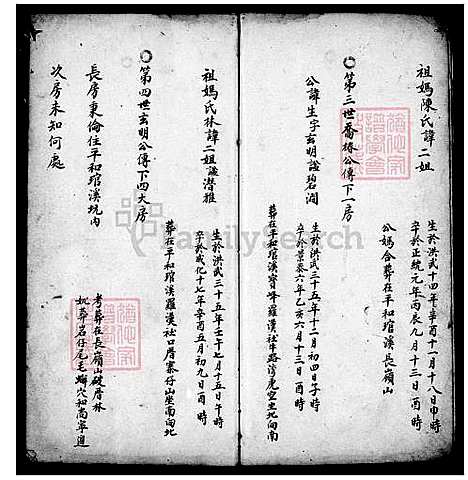 祖媽陳氏諱二姐
生於洪武十四年辛酉十一月十八日申時
卒於正統元年丙辰九月十三日酉時
公媽合葬在平和琯溪長嶺山
第三世喬椿公傳下一房
公諱生字玄明謚碧澗
生於洪武三十五年十二月初四日子時
卒於景泰六年乙亥六月十三日酉時
葬在平和琯溪寶峰羅漢社牛路灣虎空坐北向南
祖媽氏林諱二姐謚潜雅
生於洪武三十五年壬午七月十五日午時
卒於成化十七年辛丑五月初九日酉時
葬在平和琯溪羅漢社口厝寨仔山坐南向北
第四世玄明公傳下四大房
長房秉倫住平和琯溪坑内
考葬在長嶺山破厝林
妣葬岩仔尾毛蟹穴和尚寧道
次房未知何處
FamilySearch